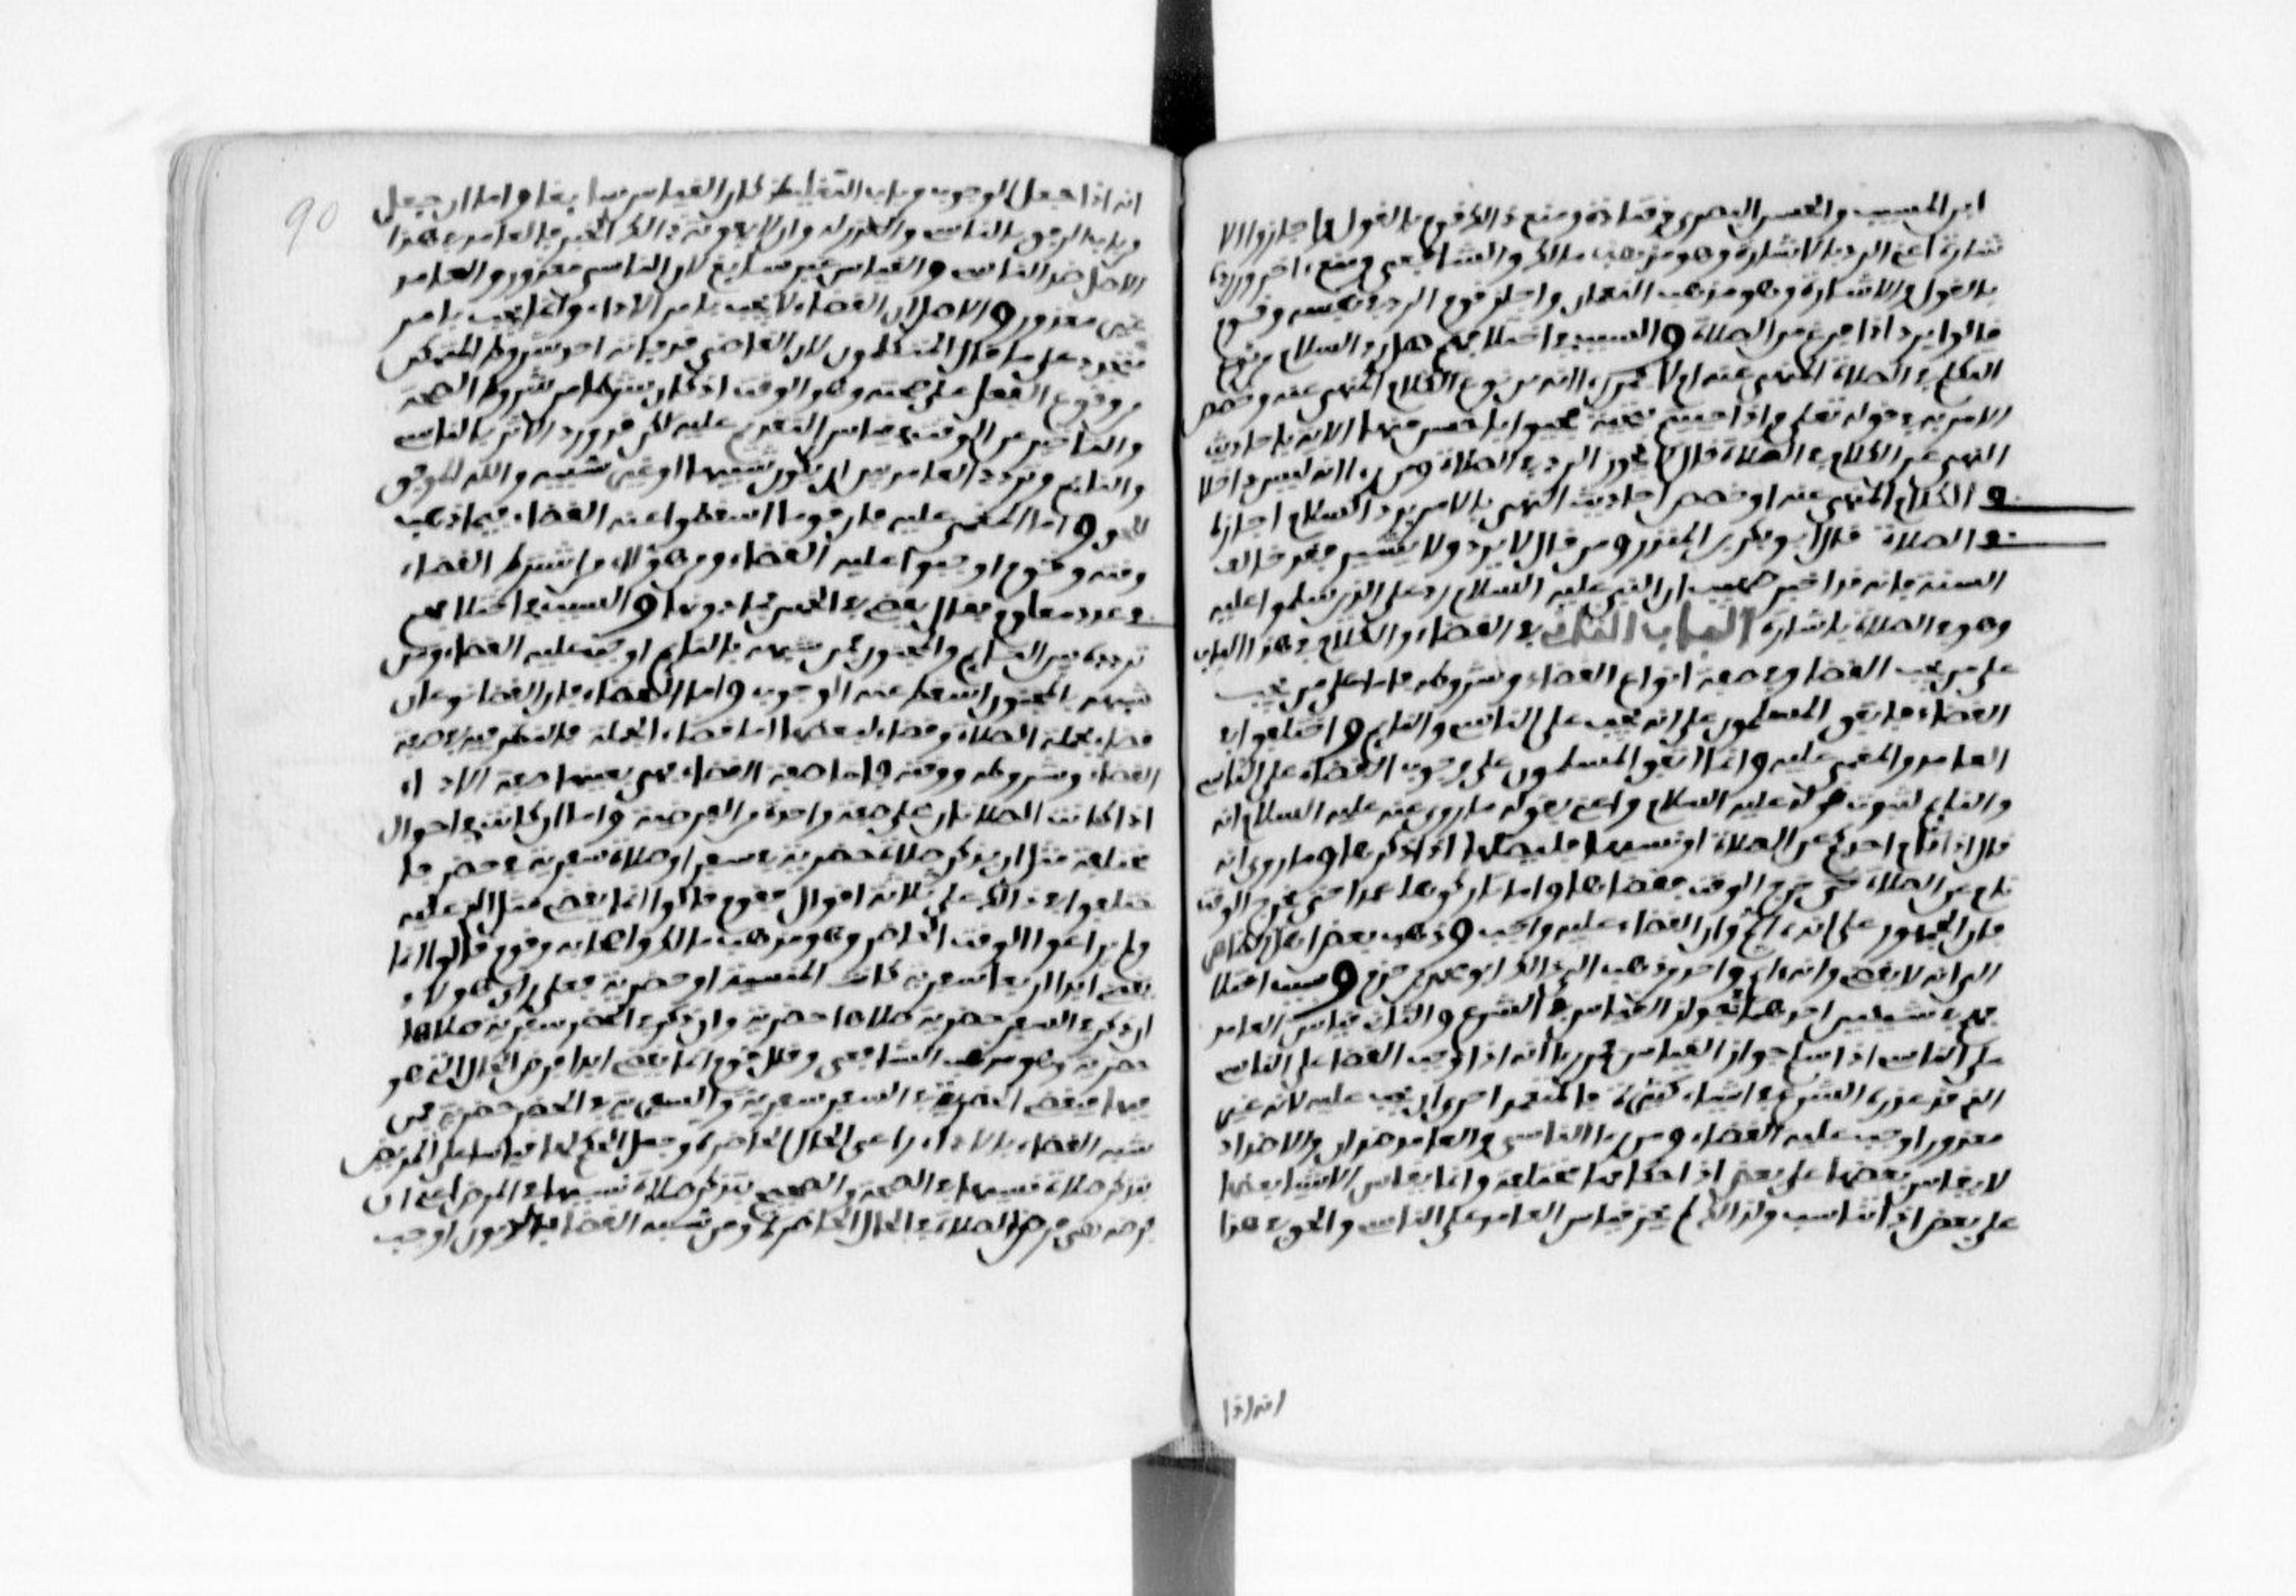 ابن المسيب والحسن البصري وقتادة ومنع ذالك قوم بالقول واجازوا الا
شارة اعني الرد بالاشارة وهو مذهب مالك والشافعي ومنع اخرون رده
بالقول والاشارة وهو مذهب النعمان واجاز قوم الرد في نفسه وقوم
قالوا يرد اذا فرغ من الصلاة والسبب في اختلافهم هل رد السلام من نوع
التكلم في الصلاة المنهي عنه ام لا فمن رءا انه من نوع الكلام المنهي عنه وخصص
الامر به في قوله تعلى واذا حييتم بتحية فحيوا باحسن منها الاية باحاديث
النهي عن الكلام في الصلاة قال لا يجوز الرد في الصلاة ومن رءا انه ليس داخلا
في الكلام المنهي عنه او خصص احاديث النهي بالامر برد السلام اجازه
في الصلاة قال ابو بكر بن المنذر ومن قال لا يرد ولا يشير فقد خالف
السنة فانه قد اخبر صهيب ان النبي عليه السلام رد على الذين سلموا عليه
وهو في الصلاة باشارة الباب الثاني في القضاء والكلام في هذا الباب
على من يجب القضا وفي صفة انواع القضاء وشروطه فاما على من يجب
القضاء فاتفق المسلمون على انه يجب على الناسي والنايم واختلفوا في
العامد والمغمى عليه وانما اتفق المسلمون على وجوب القضاء على الناسي
والنايم لثبوت قوله عليه السلام واعني بقوله ما روي عنه عليه السلام انه
قال اذا نام احدكم عن الصلاة او نسيها فليصلها اذا ذكرها وما روي انه
نام عن الصلاة حتى خرج الوقت فقضاها واما تاركها عمدا حتى يخرج الوقت
فان الجمهور على انه ءاثم وان القضاء عليه واجب وذهب بعض اهل الظاهر
الى انه لا يقضي وانه ءاثم واحد من ذهب الى ذالك ابو محمد بن حزم وسبب اختلا
فهم في شيئين احدهما جواز القياس في الشرع والثاني قياس العامد
على الناسي اذا سلم جواز القياس فمن رءا انه اذا وجب القضا على الناسي
الذي قد عذره الشرع في اشياء كثيرة فالمتعمد احرى ان يجب عليه لانه غير
معذور اوجب عليه القضاء ومن رءا الناسي والعامد ضدان والاضداد
لا يقاس بعضها على بعض اذ احكامها مختلفة وانما يقاس الاشيا بعضها
على بعض اذا تناسب ولذالك لم يجز قياس العامد على الناسي والحق في هذا
انه اذا
90
انه اذا جعل الوجوب من باب التغليظ كان القياس سايغا واما ان جعل
من باب الرفق بالناسي والعذر له وان لا يفوته ذالك الخير فالعامد في هذا
الاصل ضد الناسي والقياس غير سايغ لان الناسي معذور والعامد
غير معذور والاصل ان القضاء لا يجب بامر الاداء وانما يجب بامر
متجدد على ما قال المتكلمون لان القاضي قد فاته احد شروط التمكن
من وقوع الفعل على صحته وهو الوقت اذ كان شرطا من شروط الصحة
والتاخير عن الوقت في قياس التقديم عليه لكن قد ورد الاثر بالناسي
والنايم وتردد العامد بين ان يكون شبيها او غير شبيه والله الموفق
للحق واما المغمى عليه فان قوما اسقطوا عنه القضاء فيما ذهب
وقته وقوم اوجبوا عليه القضاء ومن هؤلاء من اشترط القضاء
في عدد معلوم فقال يقضي في الخمس فما دونها والسبب في اختلافهم
تردده بين النايم والمجنون فمن شبهه بالنايم اوجب عليه القضاء ومن
شبهه بالمجنون اسقط عنه الوجوب واما القضاء فان القضا نوعان
قضاء بجملة الصلاة وقضاء لبعضها اما قضاء الجملة فالنظر فيه في صفة
القضاء وشروطه ووقته فاما صفة القضاء فهي بعينها صفة الاداء
اذا كانت الصلاتان على صفة واحدة من الفرضية واما ان كانت في احوال
مختلفة مثل ان يذكر صلاة حضرية في سفر او صلاة سفرية في حضر فا
ختلفوا في ذالك على ثلاثة اقوال فقوم قالوا انما يقضي مثل الذي عليه
ولم يراعوا الوقت الحاضر وهو مذهب مالك واصحابه وقوم قالوا انما
يقضي ابدا اربعا سفرية كانت المنسية او حضرية فعلى راي هؤلاء
ان ذكر في السفر حضرية صلاها حضرية وان ذكر في الحضر سفرية صلاها
حضرية وهو مذهب الشافعي وقال قوم انما يقضي ابدا فرض الحال التي هو
فيها فيقضي الحضرية في السفر سفرية والسفرية في الحضر حضرية فمن
شبه القضاء بالاداء راعى الحال الحاضرة وجعل الحكم لها قياسا على المريض
يتذكر صلاة نسيها في الصحة والصحيح يتذكر صلاة نسيها في المرض اعني ان
فرضه هي فرض الصلاة في الحال الحاضرة ومن شبه القضا بالديون اوجب